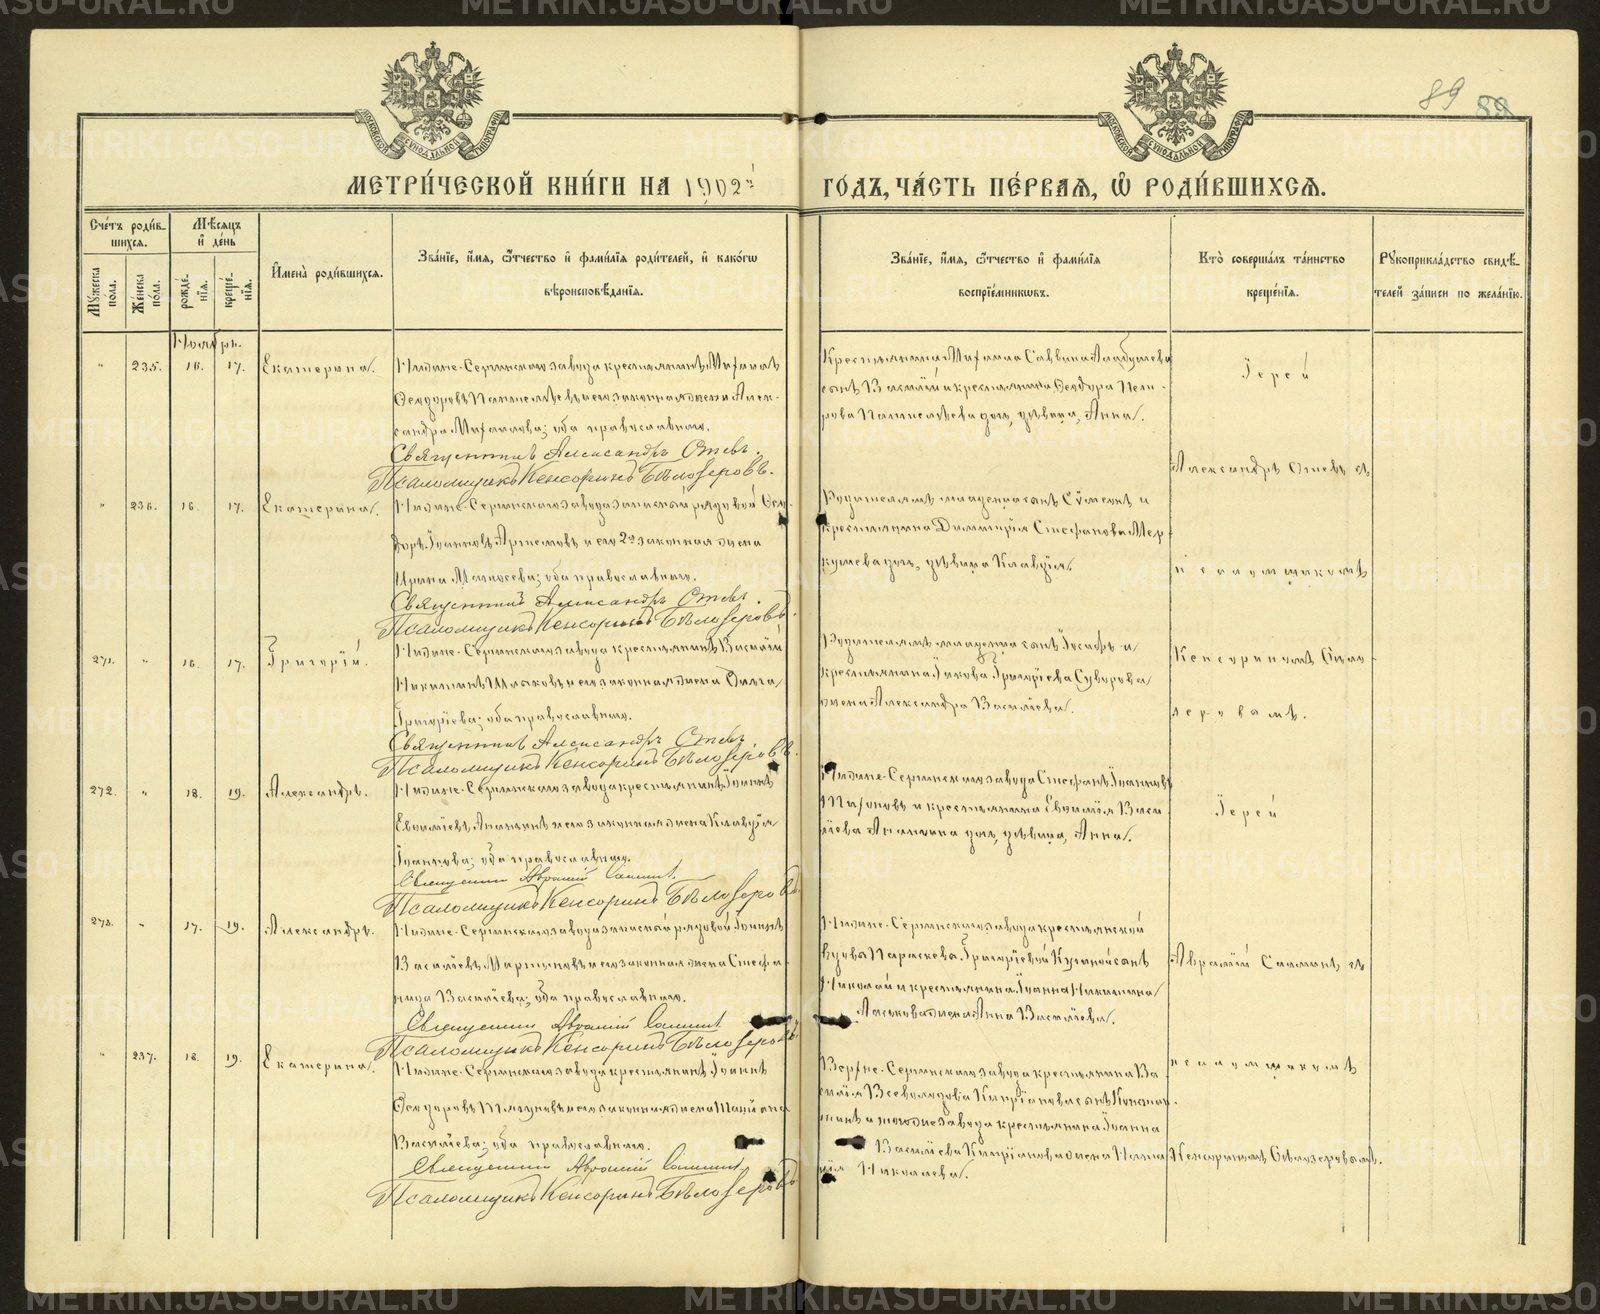 METRIKI.GASO-URAL.RU
89 89
МЕТРИ́ЧЕСКОЙ КНИ́ГИ НА 1902й
ГО́ДЪ, ЧА́СТЬ ПЕ́РВАЯ, Ѡ РОДИ́ВШИХСЯ.
Сче́тъ роди́вшихся.
Му́жеска по́ла.
Же́нска по́ла.
Мѣ́сяцъ и́ де́нь
рожде́нїя.
креще́нїя.
И҆мена̀ роди́вшихся.
Зва́нїе, и҆́мя, ѻ҆́тчество и҆ фами́лїя роди́телей, и҆ како́гѡ
вѣроисповѣ́данїя.
Зва́нїе, и҆́мя, ѻ҆́тчество и҆ фами́лїя
воспрїе́мникѡвъ.
Кто̀ соверша́лъ та́инство
креще́нїя.
Рꙋкоприкла́дство свидѣ́-
телей за́писи по жела́нїю.
Ноябрь.
" 235. 16. 17. Екатерина.
Нижне-Сергинскаго завода крестьянинъ Михаилъ
Ѳеодоровъ Пантелѣевъ и его законная жена Алек-
сандра Михаилова; оба православные.
Священникъ Александръ Отевъ.
Псаломщикъ Кенсоринъ Бѣлозеровъ.
сынъ Василій и крестьянина Ѳеодора Пет-
рова Пантелѣева дочь, дѣвица, Анна.
Іерей
Александръ Отевъ съ
" 236. 16. 17. Екатерина.
Нижне-Сергинскаго завода запасный рядовой Ѳео-
доръ Іоанновъ Артемовъ и его 2я законная жена
Ирина Моисеева; оба православные.
Священникъ Александръ Отевъ.
Псаломщикъ Кенсоринъ Бѣлозеровъ.
Родителямъ младенца сынъ Сѵмеонъ и
крестьянина Димитрія Стефанова Мер-
кушева дочь, дѣвица Клавдія.
псаломщикомъ
271. " 16. 17. Григорій.
Нижне-Сергинскаго завода крестьянинъ Василій
Никитинъ и его законная жена Ольга
Григоріева; оба православные.
Священникъ Александръ Отевъ
Псаломщикъ Кенсоринъ Бѣлозеровъ.
Родителямъ младенца сынъ Іосифъ и
крестьянина Іакова Григоріева Суворова
жена Александра Васильева.
Кенсориномъ Бѣло-
зеровымъ.
272. " 18. 19. Александръ.
Нижне-Сергинскаго завода крестьянинъ Іоаннъ
Евѳиміевъ Ананьинъ и его законная жена Клавдія
Іоаннова; оба православные.
Священникъ Авраамій
Псаломщикъ Кенсоринъ Бѣлозеровъ.
Нижне-Сергинскаго завода Стефанъ Іоанновъ
и крестьянина Евѳимія Васи-
ліева Ананьина дочь, дѣвица, Анна.
Іерей
273. " 17. 19. Александръ.
Нижне-Сергинскаго завода запасный рядовой Іоаннъ
Василіевъ Мартыновъ и его законная жена Стефа-
нида Василіева; оба православные.
Священникъ Авраамій
Псаломщикъ Кенсоринъ Бѣлозеровъ.
Нижне-Сергинскаго завода крестьянской
вдовы Параскевы Григоріевой сынъ
Николай и крестьянина Іоанна Никитина
жена Анна Василіева.
Авраамій
" 237. 18. 19. Екатерина.
Нижне-Сергинскаго завода крестьянинъ Іоаннъ
Ѳеодоровъ и его законная жена Татіана
Василіева; оба православные.
Священникъ Авраамій
Псаломщикъ Кенсоринъ Бѣлозеровъ
Верхне-Сергинскаго завода крестьянина Ва-
силія Всеволодова Кипріанова сынъ Констан-
тинъ и тогоже завода крестьянина Іоанна
Василіева Кипріанова жена
Николаева.
псаломщикомъ
Кенсориномъ Бѣлозеровымъ.